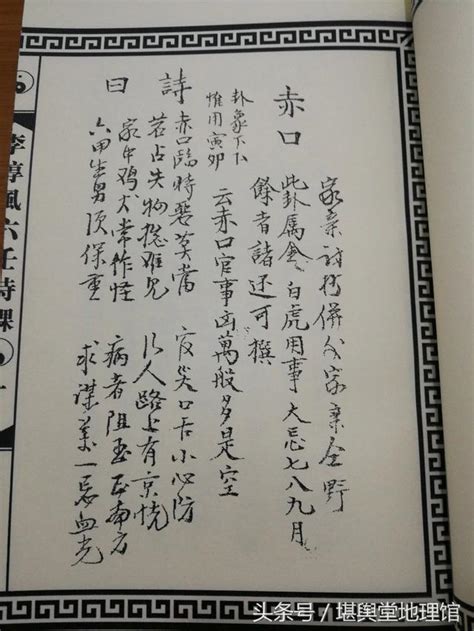 赤口
家亲討併家亲全野
此卦属金白虎用事大忌七八九月
餘者諸还可撰
卦象下下
惟用寅卯
云赤口官事凶萬般多是空
詩曰
赤口臨時莫當 官災口舌小心防
若占失物總难見 行人路上有京慌
家中鸡犬常作怪 病者阻正南方
六甲生男须保重 求谋一忌血光
李淳風六壬時課
头条号 / 堪舆堂地理馆